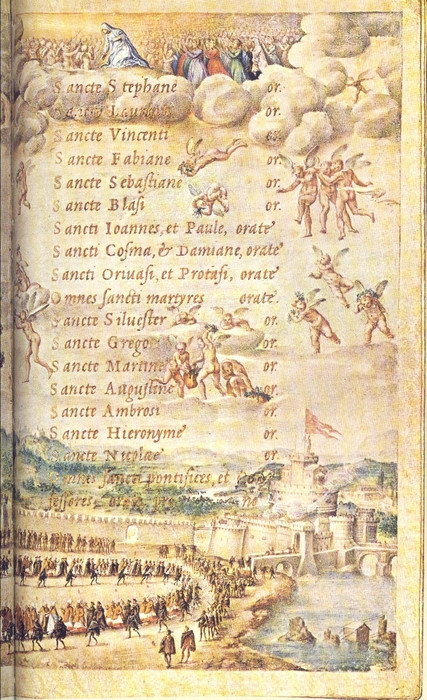 Sancte Stephane or.
Sancte Laurenti or.
Sancte Vincenti or.
Sancte Fabiane or.
Sancte Sebastiane or.
Sancte Blasi or.
Sancti Ioannes, et Paule, orate
Sancti Cosma, & Damiane, orate
Sancti Oriuasi, et Protasi, orate
Omnes sancti martyres orate.
Sancte Siluester or.
Sancte Grego or.
Sancte Martine or.
Sancte Augustine or.
Sancte Ambrosi or.
Sancte Hieronyme or.
Sancte Nicolae or.
Omnes sancti pontifices, et
fessores, orate pro no